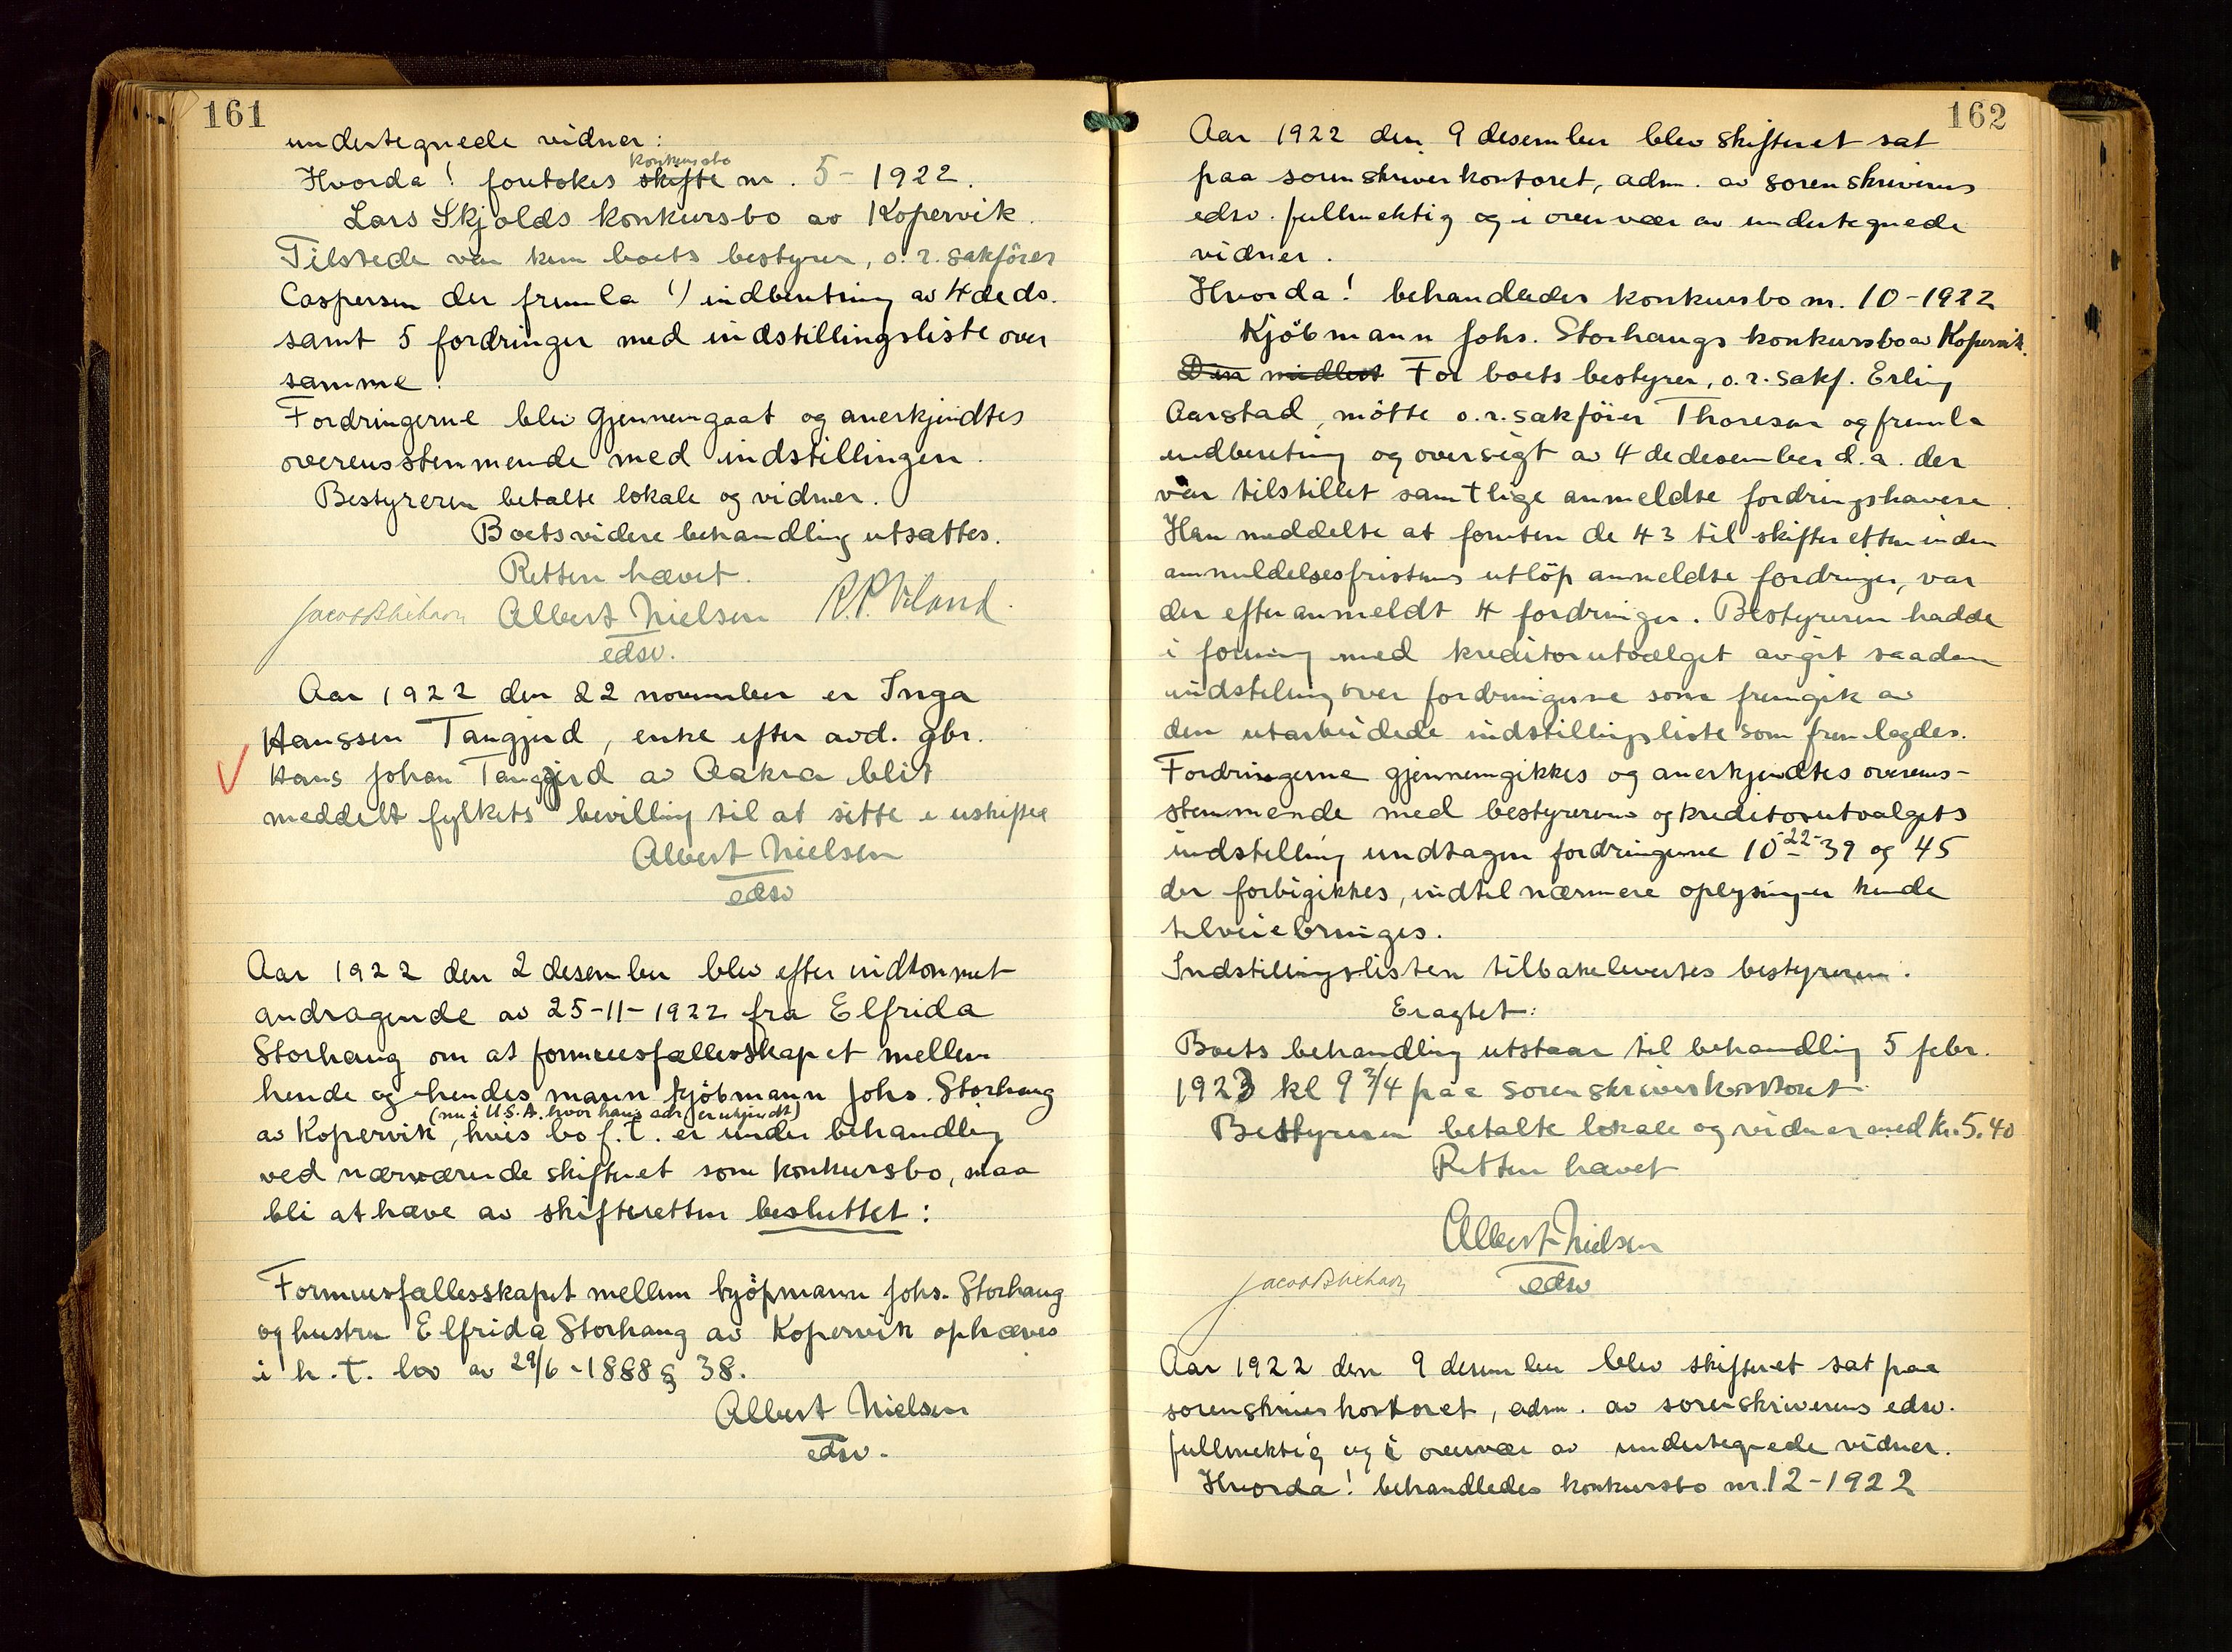 161
undertegnede vidner:
konkursbo
Hvorda! foretokes skifte nr. 5 - 1922.
Lars Skjolds konkursbo av Kopervik.
Tilstede var kun boets bestyrer, o.r. sakförer
Caspersen der fremla 1) indberetning av 4de ds.
samt 5 fordringer med indstillingsliste over
samme.
Fordringerne blev gjennemgaat og anerkjendtes
overensstemmende med indstillingen.
Bestyreren betalte lokale og vidner.
Boets videre behandling utsattes.
Retten hævet.
Albert Nielsen
edsv.
Aar 1922 den 22 november er Inga
Hanssen Tangjerd, enke efter avd. gbr.
Hans Johan Tangjerd av Aakra blit
meddelt fylkets bevilling til at sitte i uskiftea
Albert Nielsen
edsv
Aar 1922 den 2 desember blev efter indkommet
andragende av 25-11-1922 fra Elfrida
Storhaug om at formuesfællesskapet mellem
hende og hendes mann kjöbmann Johs. Storhaug
(nu i U.S.A. hvor hans adr. er ukjendt)
av Kopervik, hvis bo f.t. er under behandling
ved nærværende skifteret som konkursbo, maa
bli at hæve av skifteretten besluttet:
Formuesfællesskapet mellem kjöpmann Johs. Storhaug
og hustru Elfrida Storhaug av Kopervik ophæves
i h.t. lov av 29/6-1888 § 38.
Albert Nielsen
edsv.
162
Aar 1922 den 9 desember blev skifteret sat
paa sorenskriverkontoret, adm. av sorenskriverens
edsv. fullmektig og i overvær av undertegnede
vidner.
Hvorda! behandledes konkursbo nr. 10-1922
Kjöbmann Johs. Storhaugs konkursbo av Kopervik.
Den midlert For boets bestyrer, o.r. sakf. Erling
Aarstad, mötte o.r. sakförer Thoresen og fremla
indberetning og oversigt av 4de desember d.a. der
var tilstillet samtlige anmeldte fordringshavere.
Han meddelte at foruten de 43 til skifteretten inden
anmeldelsesfristens utlöp anmeldte fordringer, var
der efteranmeldt 4 fordringer. Bestyreren hadde
i forening med kreditorutvalget avgit saadan
indstilling over fordringerne som fremgik av
den utarbeidede indstillingsliste som fremlagdes.
Fordringerne gjennemgikkes og anerkjendtes overens-
stemmende med bestyrerens og kreditorutvalgets
indstilling undtagen fordringerne 10-22-39 og 45
der forbigikkes, indtil nærmere oplysninger kunde
tilveiebringes.
Indstillingslisten tilbakelevertes bestyreren.
Eragtet:
Boets behandling utstaar til behandling 5 febr.
1923 kl 9 3/4 paa sorenskriverkontoret.
Bestyreren betalte lokale og vidner med Kr. 5.40
Retten hævet
Albert Nielsen
edsv
Aar 1922 den 9 desember blev skifteret sat paa
sorenskriverkontoret, adm. av sorenskriverens edsv.
fullmektig og i overvær av undertegnede vidner.
Hvorda! behandledes konkursbo nr. 12-1922